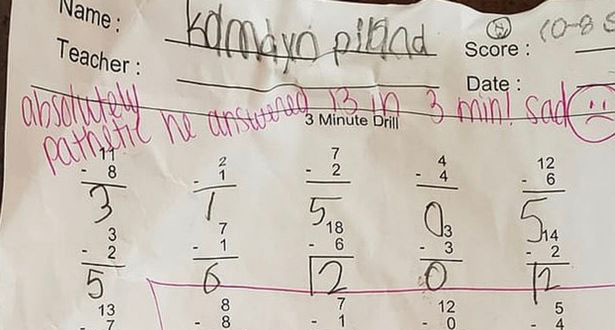 Name: Kamdyn piland
Teacher: Score:
Date:
absolutely
pathetic he answered 13 in 3 min! sad
3 Minute Drill
11 2 7 4 12
- 8 - 1 - 2 - 4 - 6
3 1 5 0 5
3 7 18 3 14
- 2 - 1 - 6 - 3 - 2
5 6 12 0 12
13 8 7 12 5
- 7 - 8 - 1 - 0 - 4